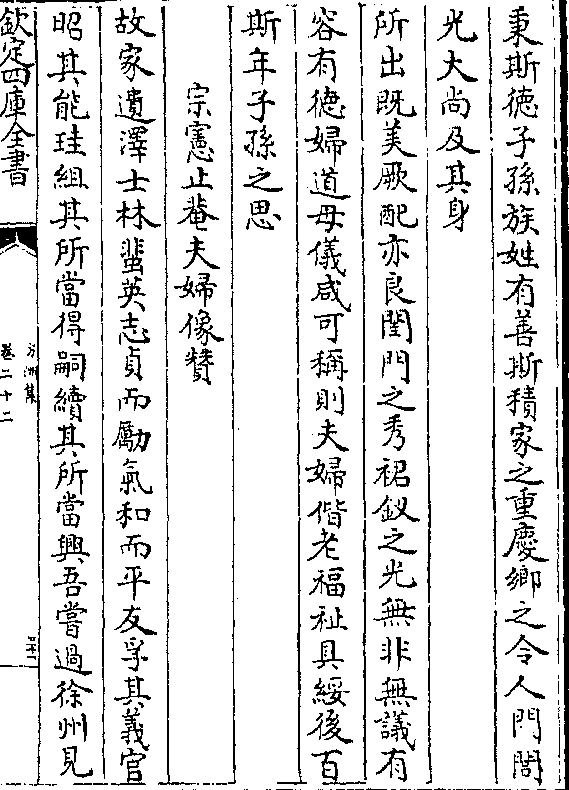 秉斯徳子孫族姓有善斯積家之重慶鄉之令人門閭
光大尚及其身
所出既美厥配亦良閨門之秀裙釵之光無非無議有
容有徳婦道母儀咸可稱則夫婦偕老福祉具綏後百
斯年子孫之思
宗憲止菴夫婦像贊
故家遺澤士林蜚英志貞而勵氣和而平友孚其義官
昭其能珪組其所當得嗣續其所當興吾嘗過徐州見
欽定四庫全書
方洲集
卷二十二